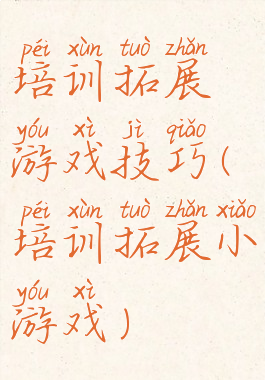 péi xùn tuò zhǎn
培训拓展
yóu xì jì qiǎo
游戏技巧(
péi xùn tuò zhǎn xiǎo
培训拓展小
yóu xì
游戏)